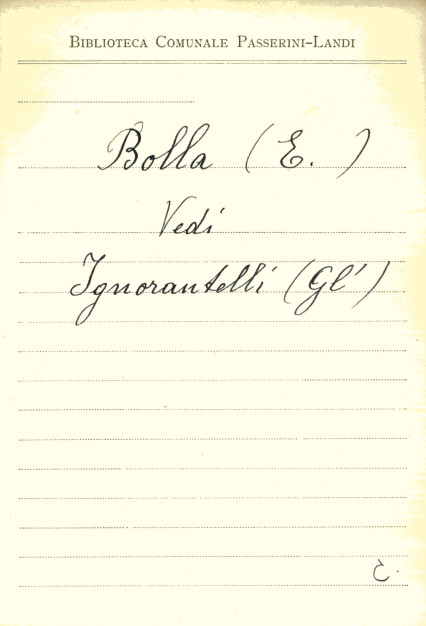 Biblioteca Comunale Passerini-Landi
Bolla (E. )
Vedi
Ignorantelli (Gl')
C.